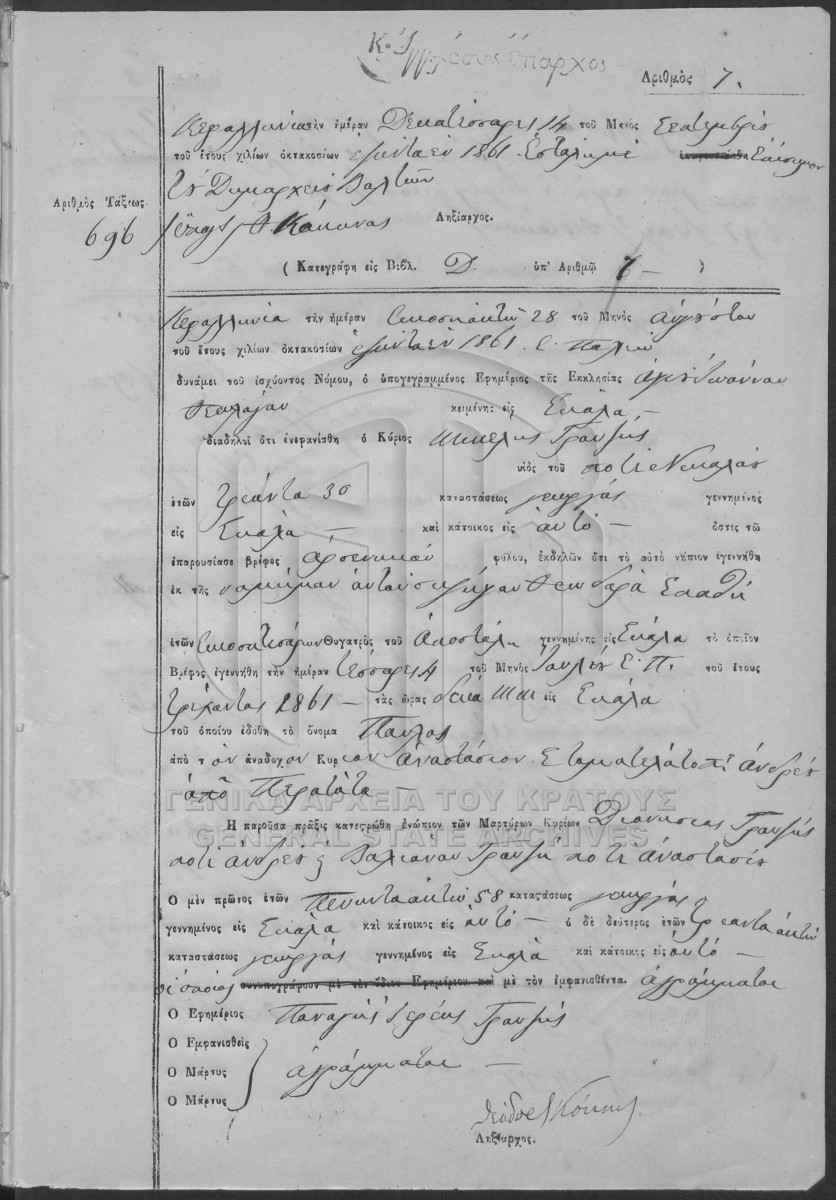 Ἔπαρχος
Ἀριθμὸς 7.
Κεφαλληνία τὴν ἡμέραν Δεκατέσσαρες 14 τοῦ Μηνὸς Σεπτεμβρίου
τοῦ ἔτους χιλίων ὀκτακοσίων ἑξῆντα ἕν 1861. Ἐστάλη μὲ
τὸ Δημαρχεῖο
Ἀριθμὸς Τάξεως
696
Ληξίαρχος.
( Κατεγράφη εἰς Βιβλ. Δ. ὑπ' Ἀριθμῷ 7 — )
Κεφαλληνία τὴν ἡμέραν εἰκοσιοκτώ 28 τοῦ Μηνὸς Αὐγούστου
τοῦ ἔτους χιλίων ὀκτακοσίων ἑξῆντα ἕν 1861. Ε. Παλαιό
δυνάμει τοῦ ἰσχύοντος Νόμου, ὁ ὑπογεγραμμένος Ἐφημέριος τῆς Ἐκκλησίας ἁγίου Ἰωάννου
Θεολόγου κειμένης εἰς Σκάλα —
διαδηλοῖ ὅτι ἐνεφανίσθη ὁ Κύριος Μικέλης Γραυζής
υἱὸς τοῦ ποτὲ Νικολάου
ἐτῶν τριάντα 30 καταστάσεως γεωργός γεννημένος
εἰς Σκάλα — καὶ κάτοικος εἰς αὐτό — ὅστις τῷ
ἐπαρουσίασε βρέφος ἀρσενικοῦ φύλου, ἐκδηλῶν ὅτι τὸ αὐτὸ νήπιον ἐγεννήθη
ἐκ τῆς νομίμου αὐτοῦ συζύγου Θεοδώρα Σπαθή
ἐτῶν εἰκοσιτεσσάρων Θυγατρὸς τοῦ Ἀποστόλη γεννημένης εἰς Σκάλα τὸ ὁποῖον
Βρέφος ἐγεννήθη τὴν ἡμέραν τέσσαρες 4 τοῦ Μηνὸς Ἰουλίου Ε. Π. τοῦ ἔτους
τρέχοντος 1861 — τὰς ὥρας δέκα εἰς Σκάλα
τοῦ ὁποίου ἐδόθη τὸ ὄνομα Παῦλος
ἀπὸ τὸν ἀνάδοχον Κύριον Ἀναστάσιον Σταματελάτο π. Ἀνδρέα
ἀπὸ Περατάτα —
ΓΕΝΙΚΑ ΑΡΧΕΙΑ ΤΟΥ ΚΡΑΤΟΥΣ
GENERAL STATE ARCHIVES
Ἡ παροῦσα πρᾶξις κατεστρώθη ἐνώπιον τῶν Μαρτύρων Κυρίων Διονύσιος Γραυζής
ποτὲ Ἀνδρέα & Βαλιάνου Γραυζή ποτὲ Ἀναστασίου
Ὁ μὲν πρῶτος ἐτῶν Πενηνταοκτώ 58 καταστάσεως γεωργός
γεννημένος εἰς Σκάλα καὶ κάτοικος εἰς αὐτό — ὁ δὲ δεύτερος ἐτῶν τριανταοκτώ
καταστάσεως γεωργός γεννημένος εἰς Σκάλα καὶ κάτοικος εἰς αὐτό —
οἱ ὁποῖοι συνυπογράφουν μὲ τὸν ἴδιον Ἐφημέριον καὶ μὲ τὸν ἐμφανισθέντα. ἀγράμματοι
Ὁ Ἐφημέριος Παναγής Ἱερεύς Γραυζής
Ὁ Ἐμφανισθεὶς
Ὁ Μάρτυς ἀγράμματοι —
Ὁ Μάρτυς
Ληξίαρχος.